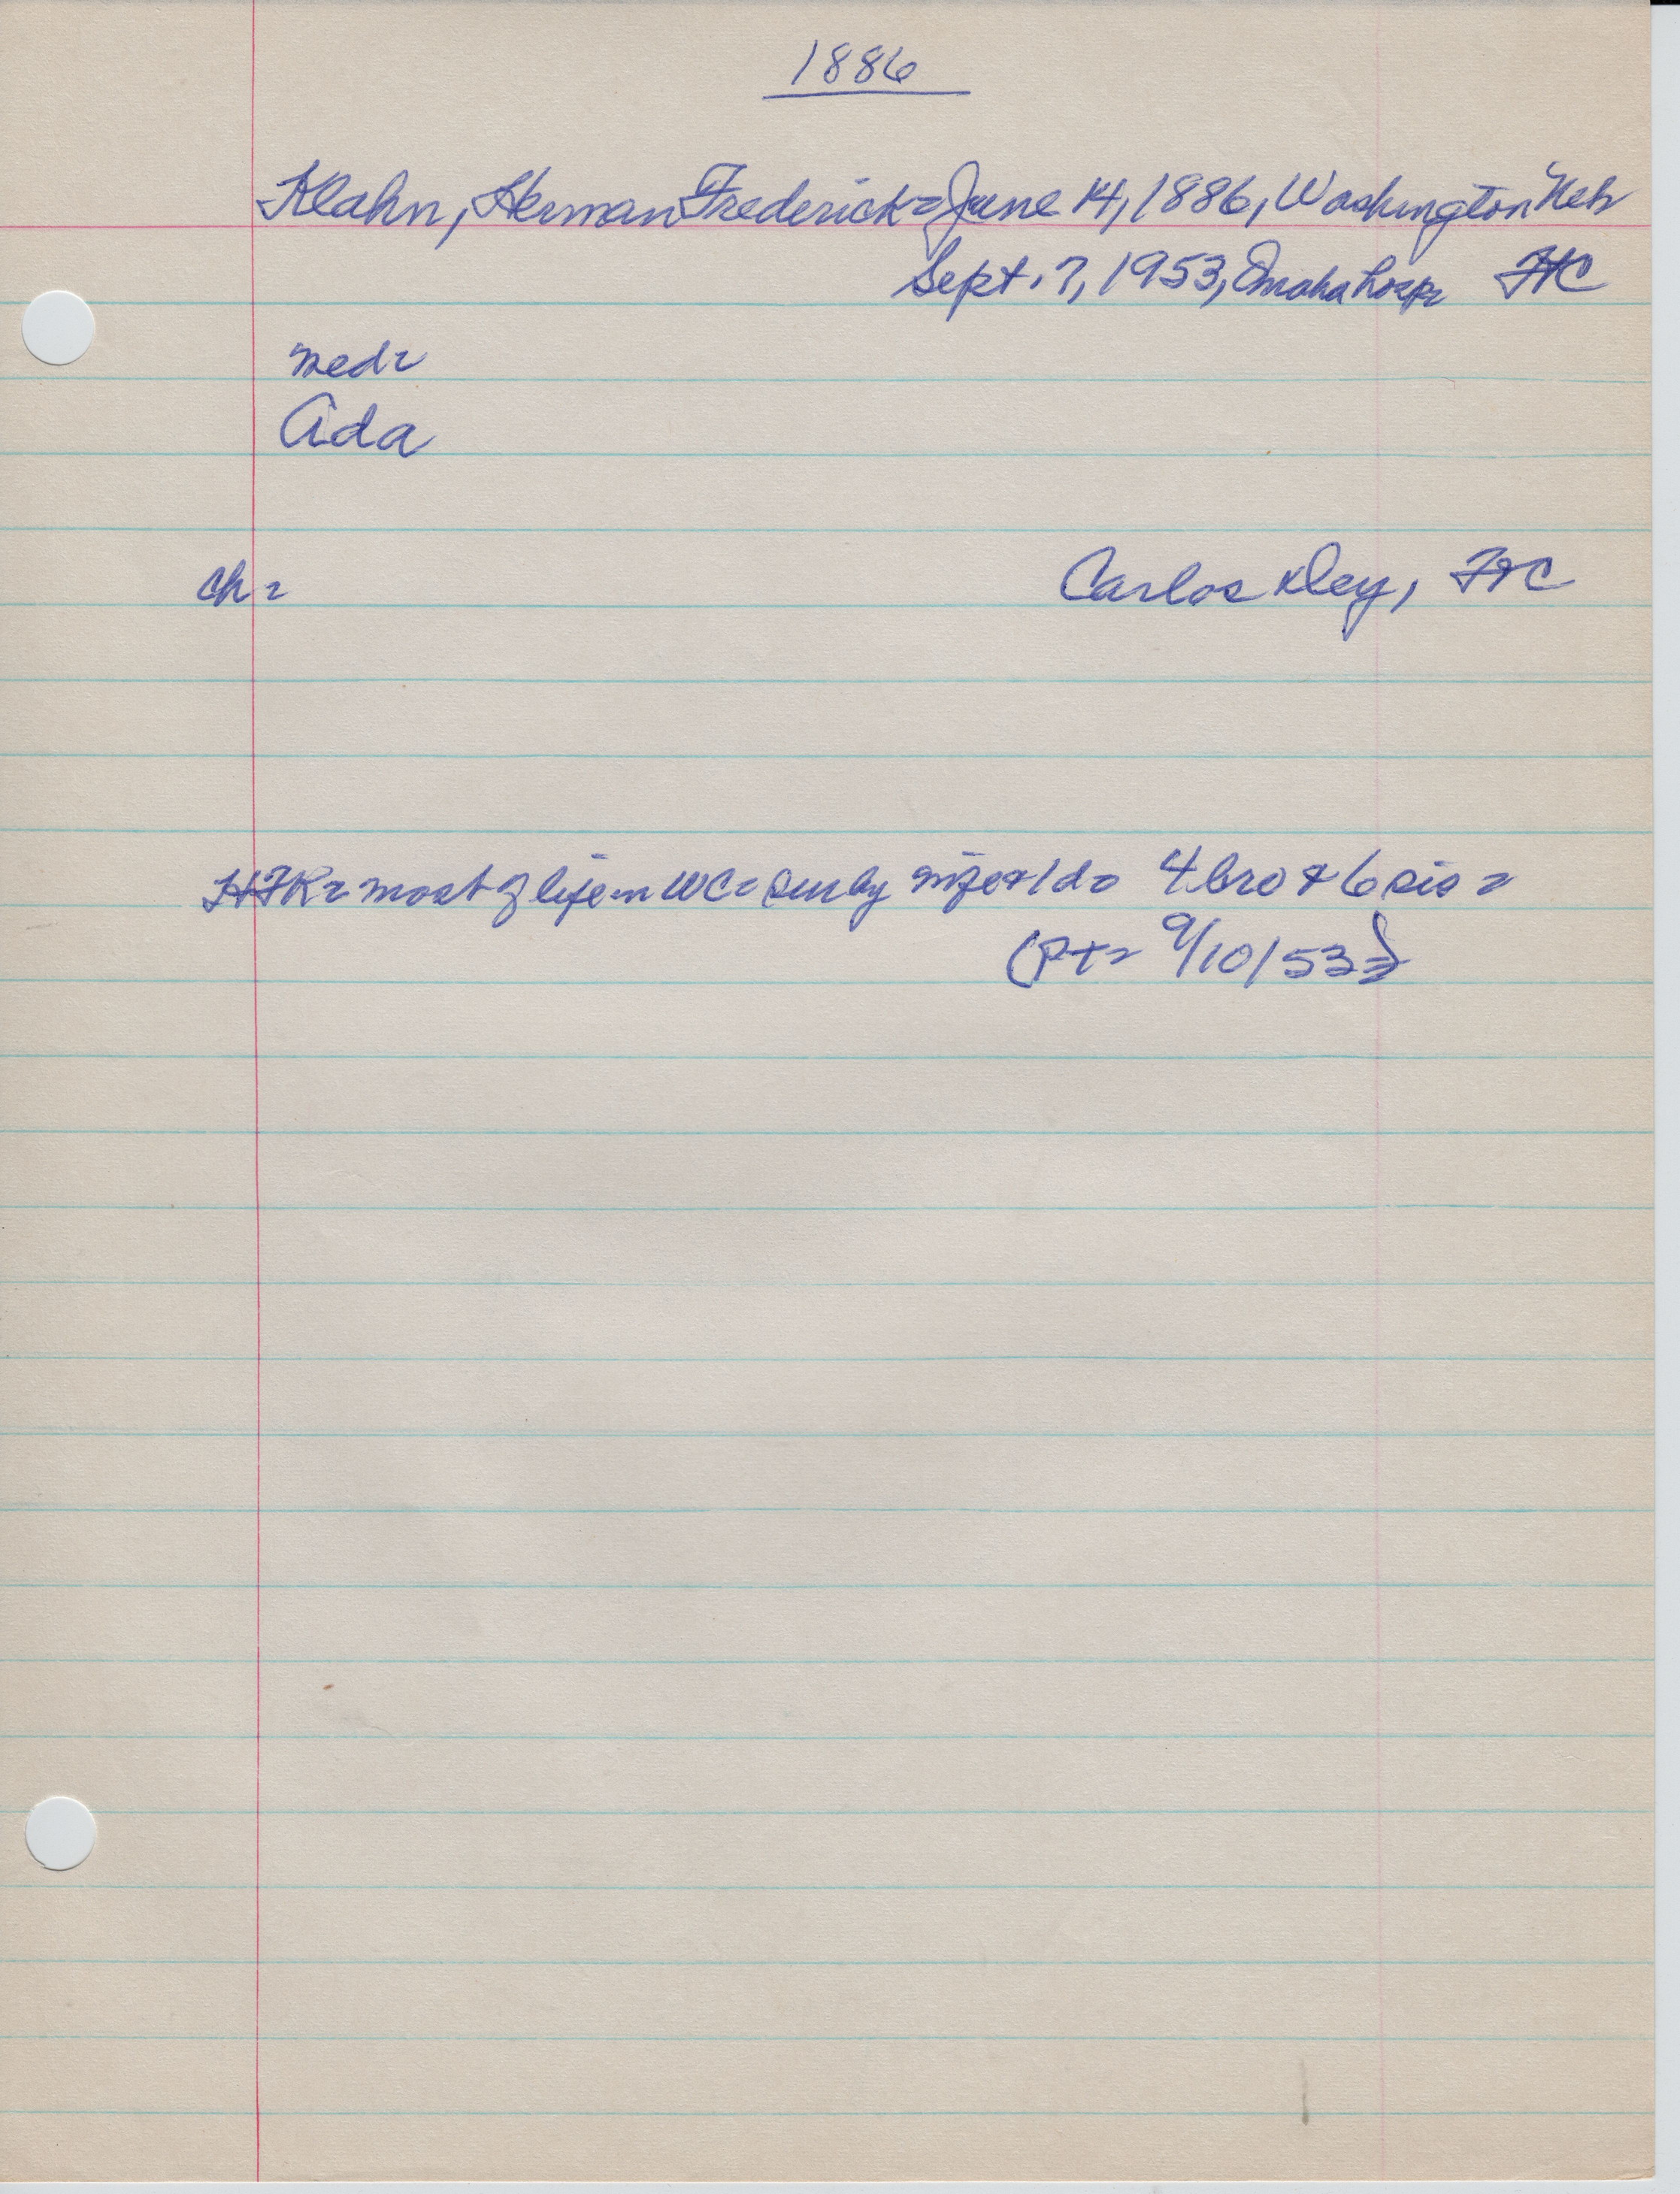 1886
Klahn, Herman Frederick = June 14, 1886, Washington Neb
Sept. 7, 1953, Omaha hosp
med =
Ada
ch =
Carlos Dey,
HFK = most of life in WC = sur by wife & 1 da 4 bro & 6 sis =
(PT = 9/10/53)